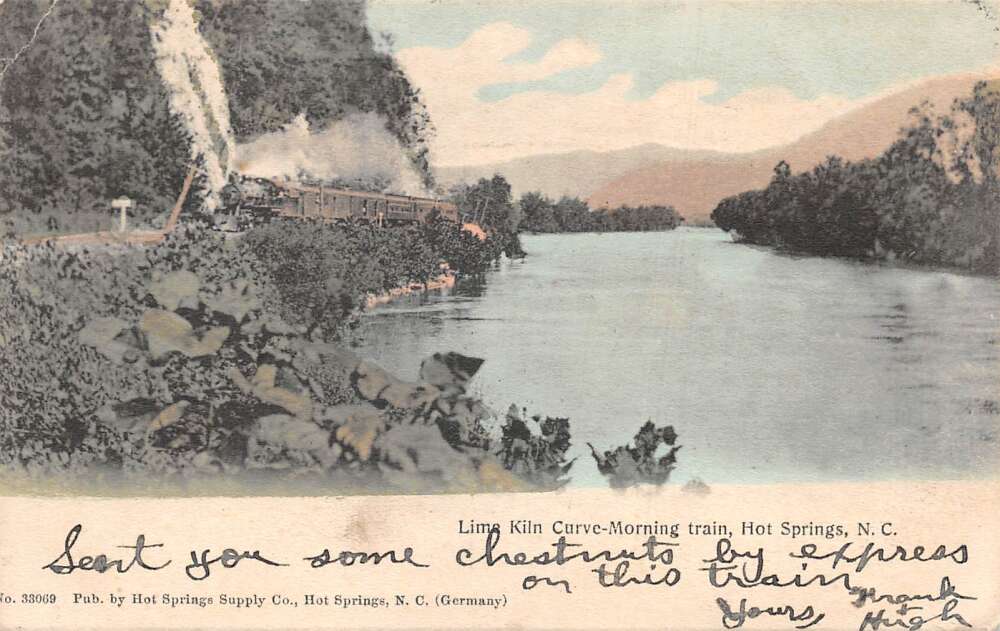 Lime Kiln Curve-Morning train, Hot Springs, N. C.
Sent you some chestnuts by express
on this train
No. 33069 Pub. by Hot Springs Supply Co., Hot Springs, N. C. (Germany)
Yours, Frank
+ Hugh